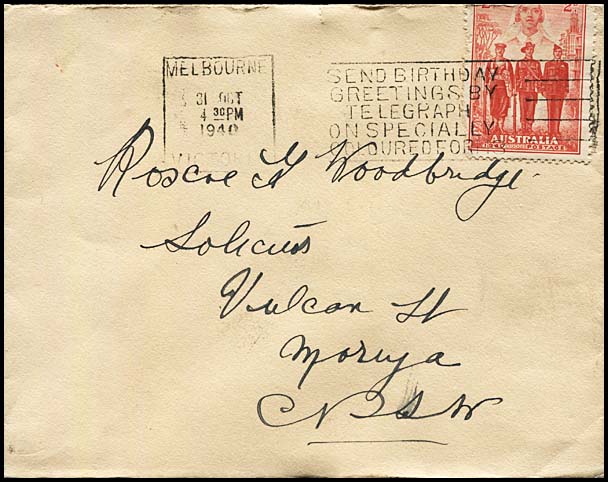 2D 2D
MELBOURNE
31 OCT
4 30 PM
1940
VICTORIA
SEND BIRTHDAY
GREETINGS BY
TELEGRAPH
ON SPECIALLY
COLOURED FOR
AUSTRALIA
POSTAGE
Roscoe G Woodbridge
Solicitor
Vulcan St
Moruya
NSW